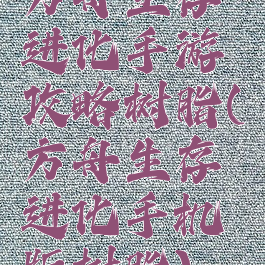 方舟生存
进化手游
攻略树脂(
方舟生存
进化手机
版树脂)